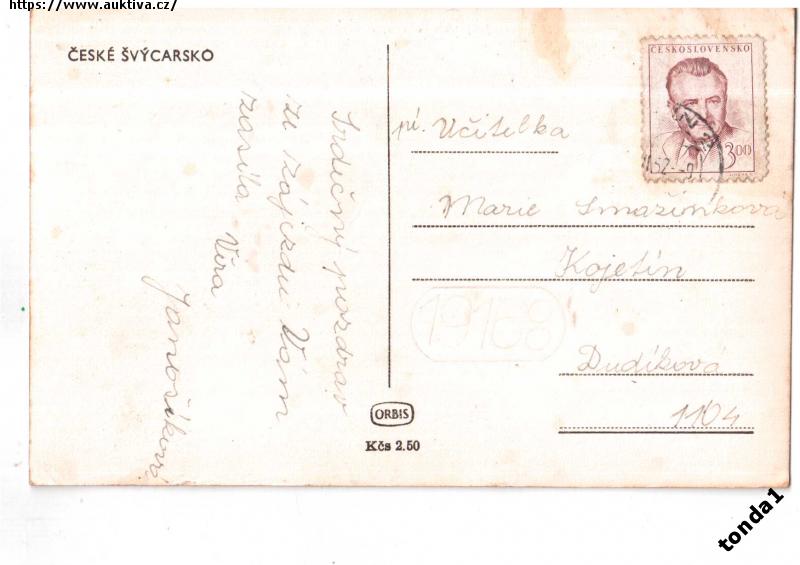 https://www.auktiva.cz/
ČESKÉ ŠVÝCARSKO
Srdečný pozdrav
ze zájezdu Vám
zasílá Věra
Janošíková
ČESKOSLOVENSKO
3.00
52-9
pí. Učitelka
Marie Smažinková
Kojetín
Dudíková
1104
19168
ORBIS
Kčs 2.50
tonda1